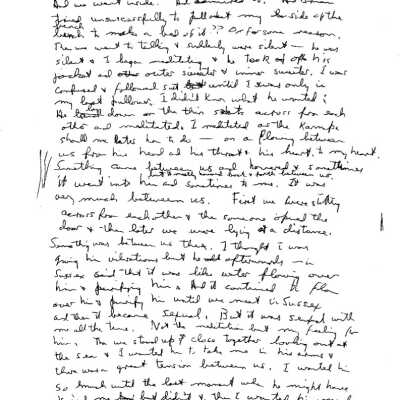 and we went inside. And
tried unsuccessfully to pull out my inside of the
french
bench to make a bed of it?? Or for some reason.
Then we went to talking & suddenly were silent — he was
silent & I began meditating & he took off his
jacket and outer sweater & inner sweater. I was
confused & followed suit until I was only in
my last pullover. I didn't know what he wanted;
He lay down on the thin seats across from each
other and meditated. I meditated as the
should me to do — on a flowing between
us from his head and his throat & his heart, to my heart.
Something came between us and hovered & sometimes
it went into him and sometimes to me. It was
very much between us. First we were sitting
across from each other & then someone opened the
door & then later we were lying at a distance.
Something was between us then. I thought I was
giving him vibrations but he said afterwards — in
Sussex said that it was like water flowing over
him & purifying him. And it continued to flow
over him & purify him until we meet in Sussex
and then it became sexual. But it was sexual with
me all the time. Not the meditation but my feeling for
him. Then we stand up & close together looking out at
the sea & I wanted him to take me in his arms &
there was a great tension between us. I wanted him
so much until the last moment when he might have
kissed me but didn't & then I wanted him